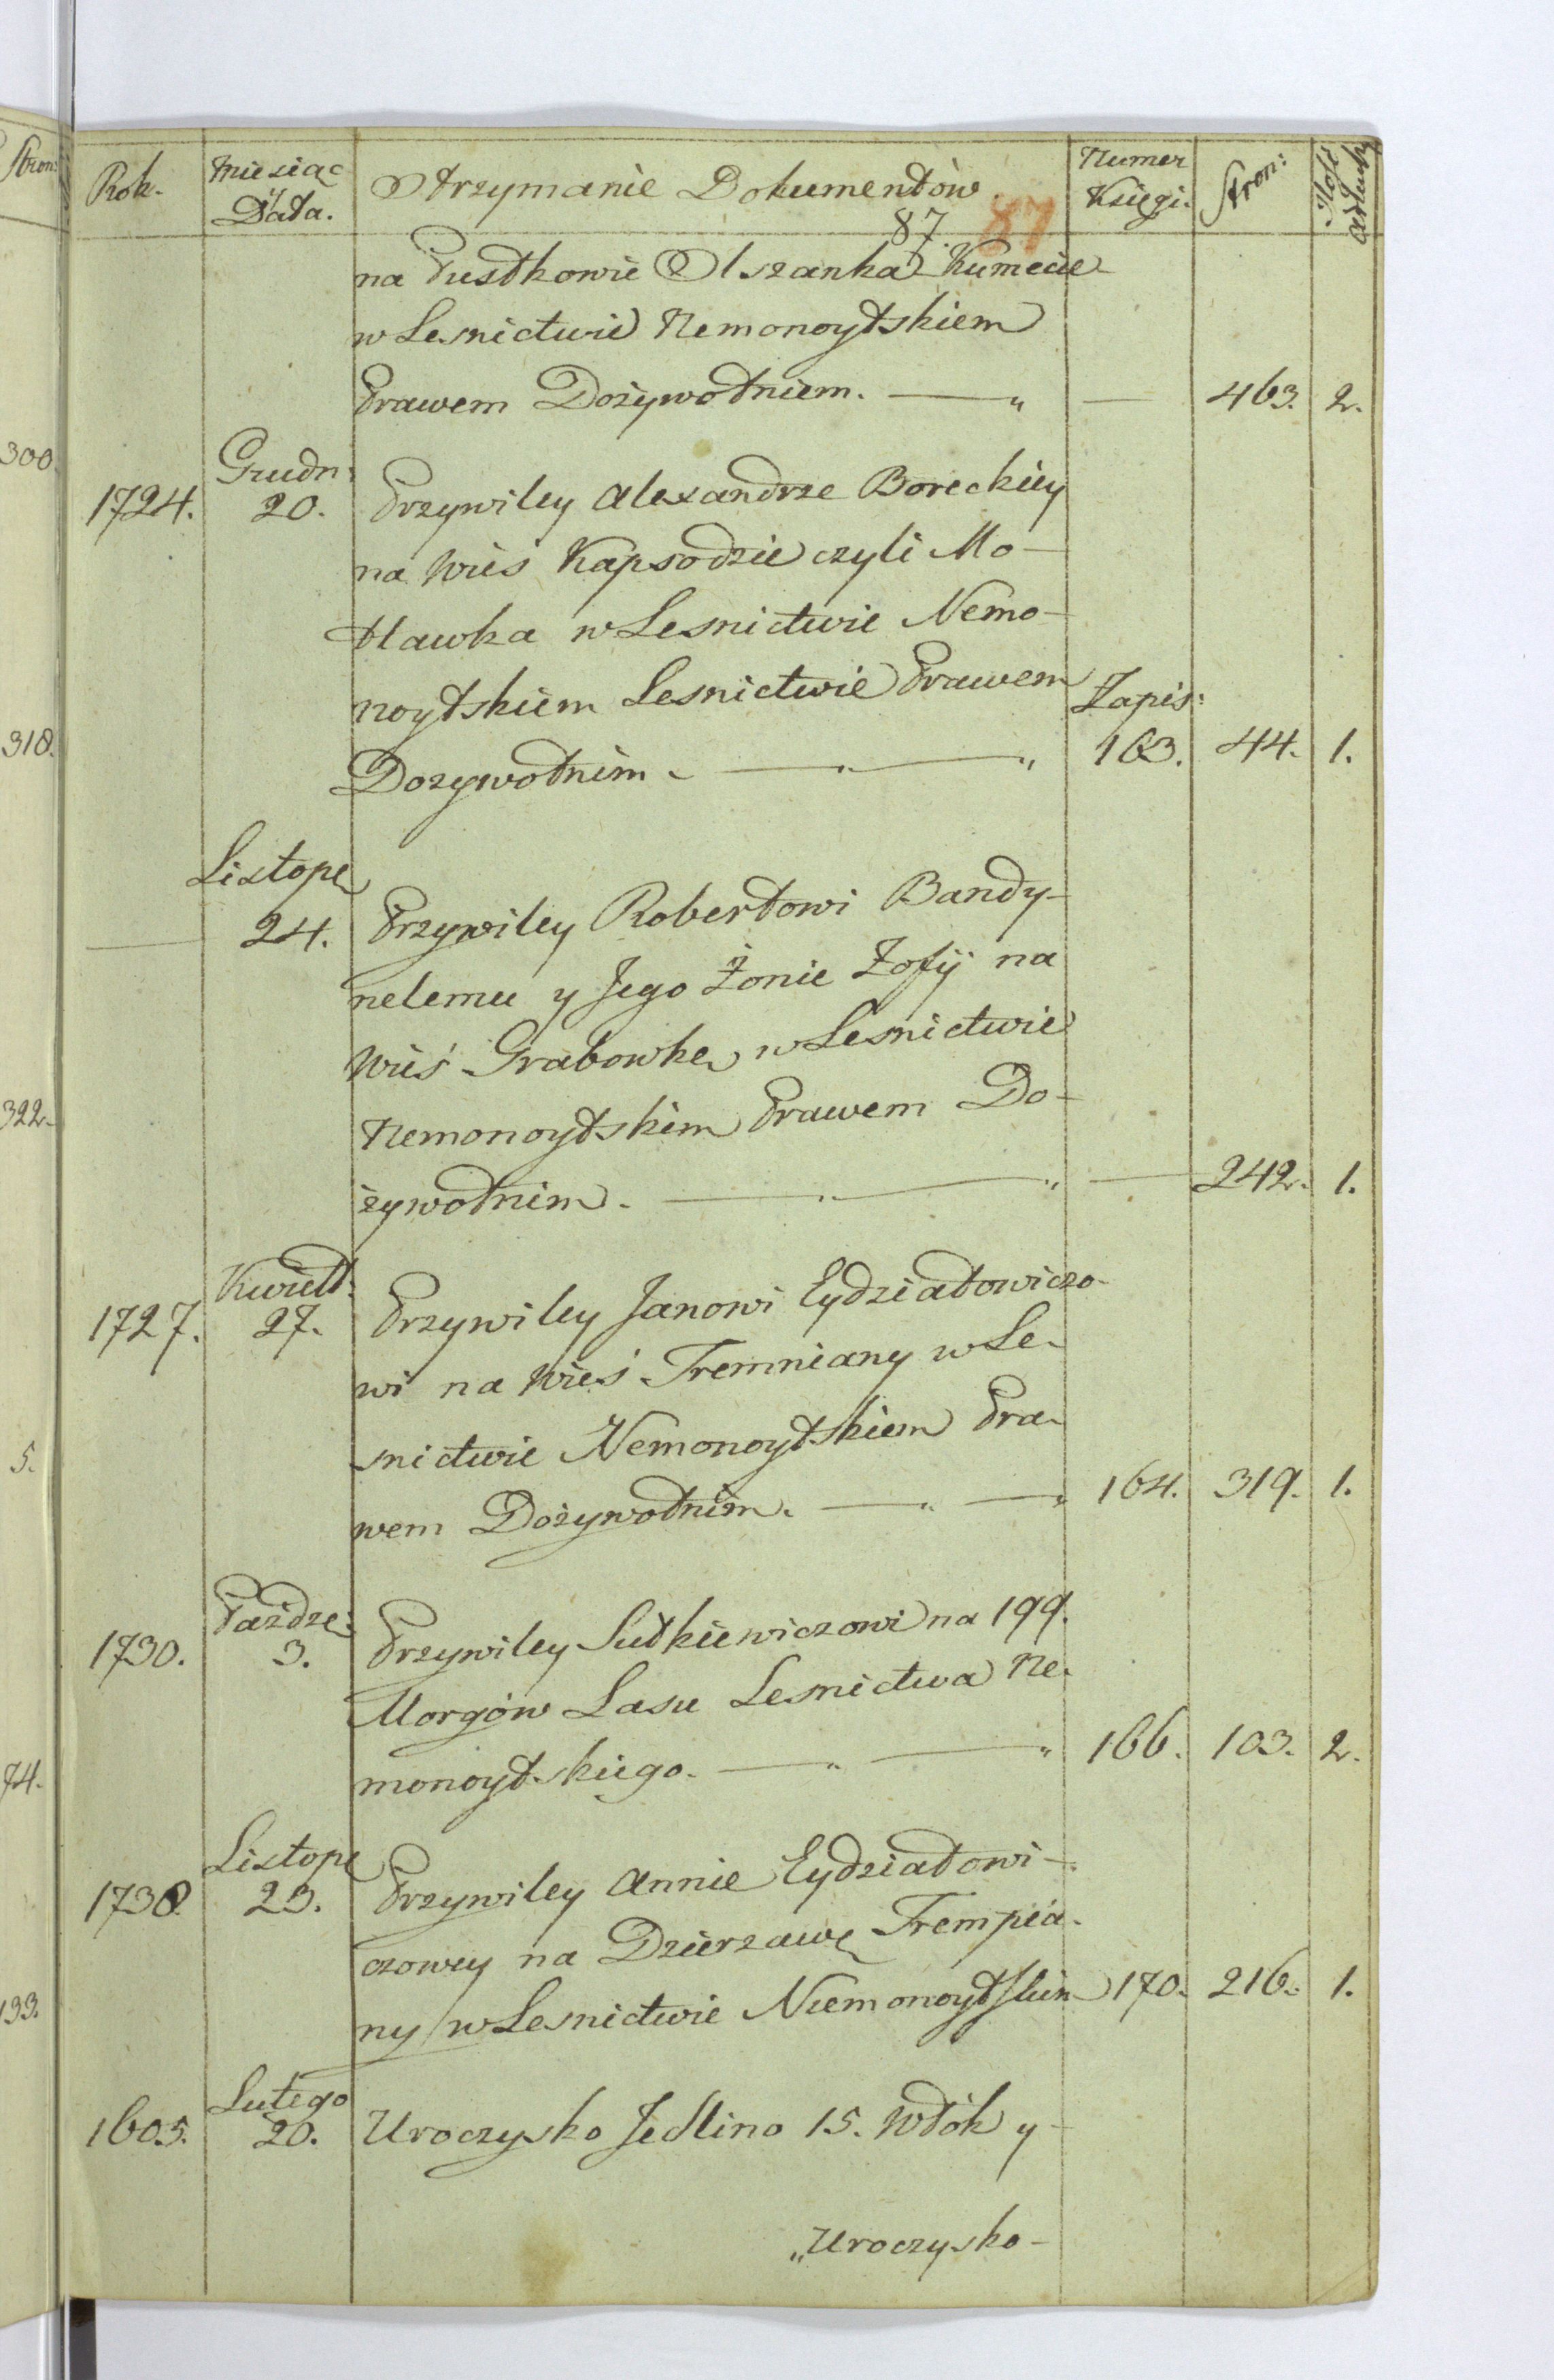 Rok. Miesiąc y Data. Otrzymanie Dokumentów Numer Księgi. Stron: Ilość
87. 87
na Pustkowie Olszanka Kumecie
w Lesnictwie Nemonoytskiem
Prawem Dożywotniem. — „ — 463. 2.
Grudn:
1724. 20. Przywiley Alexandrze Boreckiey
na Wieś Kapsodzie czyli Mo-
tławka w Lesnictwie Nemo-
noytskiem Lesnictwie Prawem Zapis:
Dozywotnim. — „ — „ 163. 44. 1.
Listopa
— 24. Przywiley Robertowi Bandy-
nelemu y Jego Żonie Zofij na
Wieś Grabowkę w Lesnictwie
Nemonoytskim Prawem Do-
żywotnim. — „ — „ — 242. 1.
Kwiet:
1727. 27. Przywiley Janowi Eydziatowiczo-
wi na Wieś Tremniany w Le-
snictwie Nemonoytskiem Pra-
wem Dożywotnim. — „ — „ 164. 319. 1.
Paźdze:
1730. 3. Przywiley Sutkiewiczowi na 199.
Morgów Lasu Lesnictwa Ne-
monoytskiego. — „ — „ 166. 103. 2.
Listopa
1738. 23. Przywiley Annie Eydziatowi-
czowey na Dzierzawę Trempia-
ny w Lesnictwie Niemonoytskim 170. 216. 1.
Lutego
1605. 20. Uroczysko Jedlino 15. Włók y
„Uroczysko-
Stron:
300.
318.
322.
5.
74.
133.